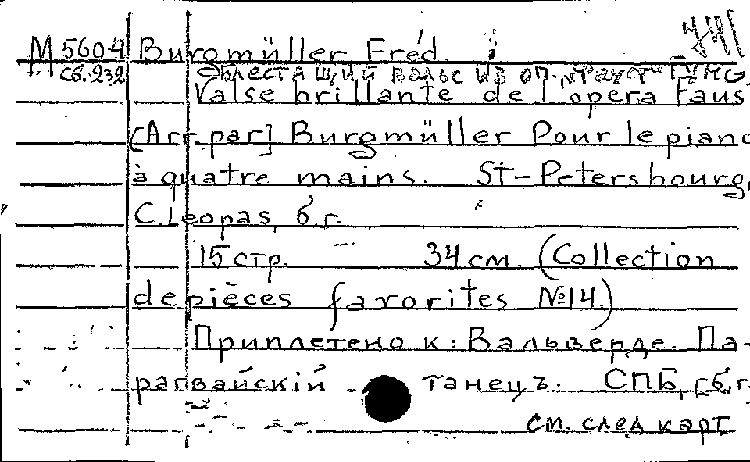 М 5604 Burgmüller Fréd.
Сб. 232 Блестящий вальс из оп. "Фауст" Гуно
Valse brillante de l'opera Faus
[Arr. par] Burgmüller Pour le piano
à quatre mains. St-Petersbourg,
C. Leopas, б.г.
15 стр. 34 см. (Collection
de pièces favorites №14.)
Приплетено к: Вальверде. Па-
рагвайскiй танецъ. СПБ, [б.г.
см. след карт